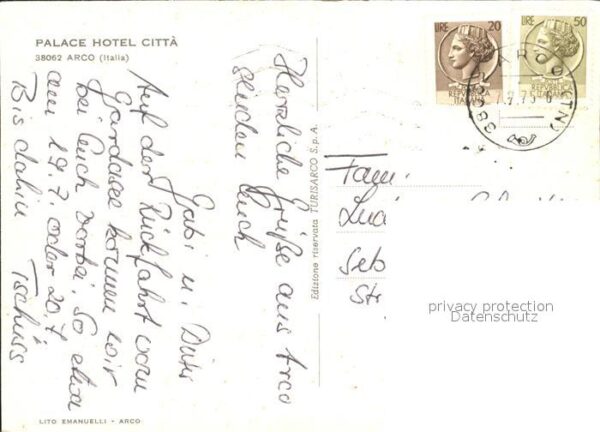 PALACE HOTEL CITTÀ
38062 ARCO (Italia)
Herzliche Grüße aus Arco
senden Euch
Gabi u.
Auf der Rückfahrt vom
Gardasee kommen wir
bei Euch vorbei. So etwa
am 19.7. oder 20.7.
Bis dahin Tschüss
LITO EMANUELLI - ARCO
Edizione riservata TURISARCO S.p.A.
LIRE 20
REPUBBLICA
ITALIANA
LIRE 50
REPUBBLICA
ITALIANA
ARCO (TN)
Fam.
Seb
Str
privacy protection
Datenschutz